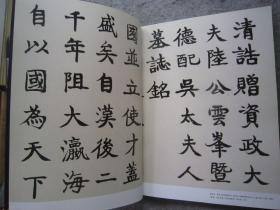 清誥贈資政大
夫陸公雲峯暨
德配吳太夫人
墓誌銘
國並立使才蓋
盛矣自漢後二
千年阻大瀛海
自以國為天下